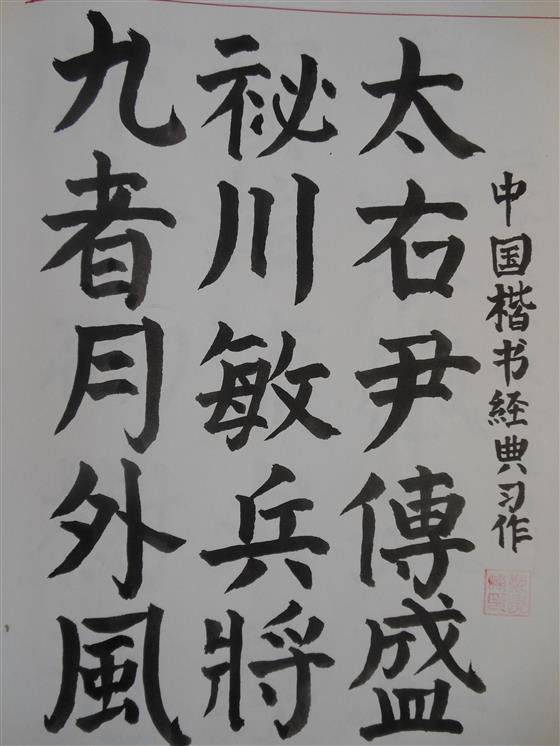 中国楷书経典习作
太右尹傳盛
祕川敏兵將
九者月外風